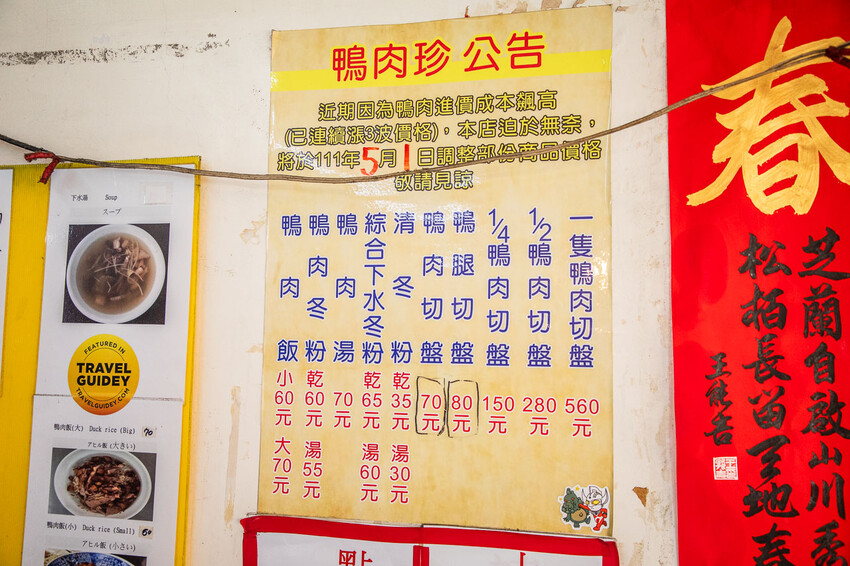 鴨肉珍 公告
近期因為鴨肉進價成本飆高
(已連續漲3波價格)，本店迫於無奈，
將於111年5月1日調整部份商品價格
敬請見諒
一隻鴨肉切盤 560元
1/2鴨肉切盤 280元
1/4鴨肉切盤 150元
鴨腿切盤 80元
鴨肉切盤 70元
清冬粉 乾35元 湯30元
綜合下水冬粉 乾65元 湯60元
鴨肉湯 70元
鴨肉冬粉 乾60元 湯55元
鴨肉飯 小60元 大70元
下水湯 Soup
スープ
FEATURED IN
TRAVEL
GUIDEY
TRAVELGUIDEY.COM
鴨肉飯(大) Duck rice (Big) 70
アヒル飯 (大きい)
鴨肉飯(小) Duck rice (Small) 60
アヒル飯 (小さい)
春
芝蘭自啟山川秀
松柏長留天地春